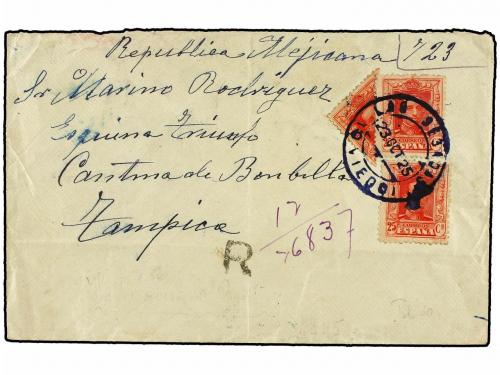 Republica Mejicana 723
Sr Marino Rodriguez
Esquina Triunfo
Cantina de Bonbilla
Tampica
R
17
6837
LAS
23 OCT 25
ESPAÑA
25 Cs
ESPAÑA